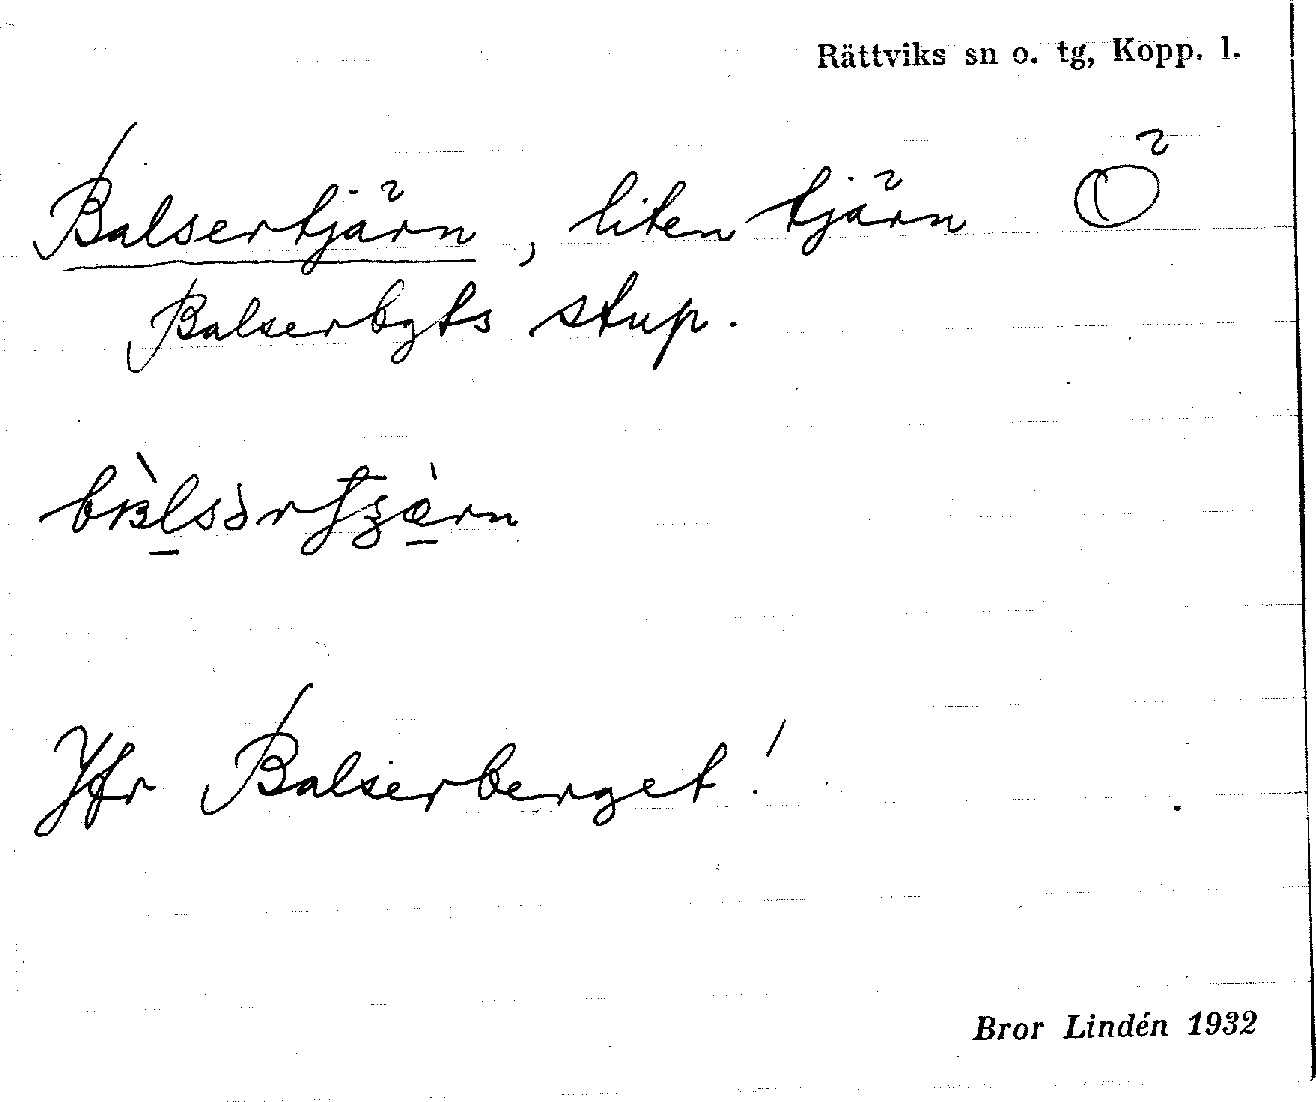 Rättviks sn o. tg, Kopp. l.
Balsertjärn, liten tjärn Ö
Balserbyts stup.
Jfr Balserberget!
Bror Lindén 1932